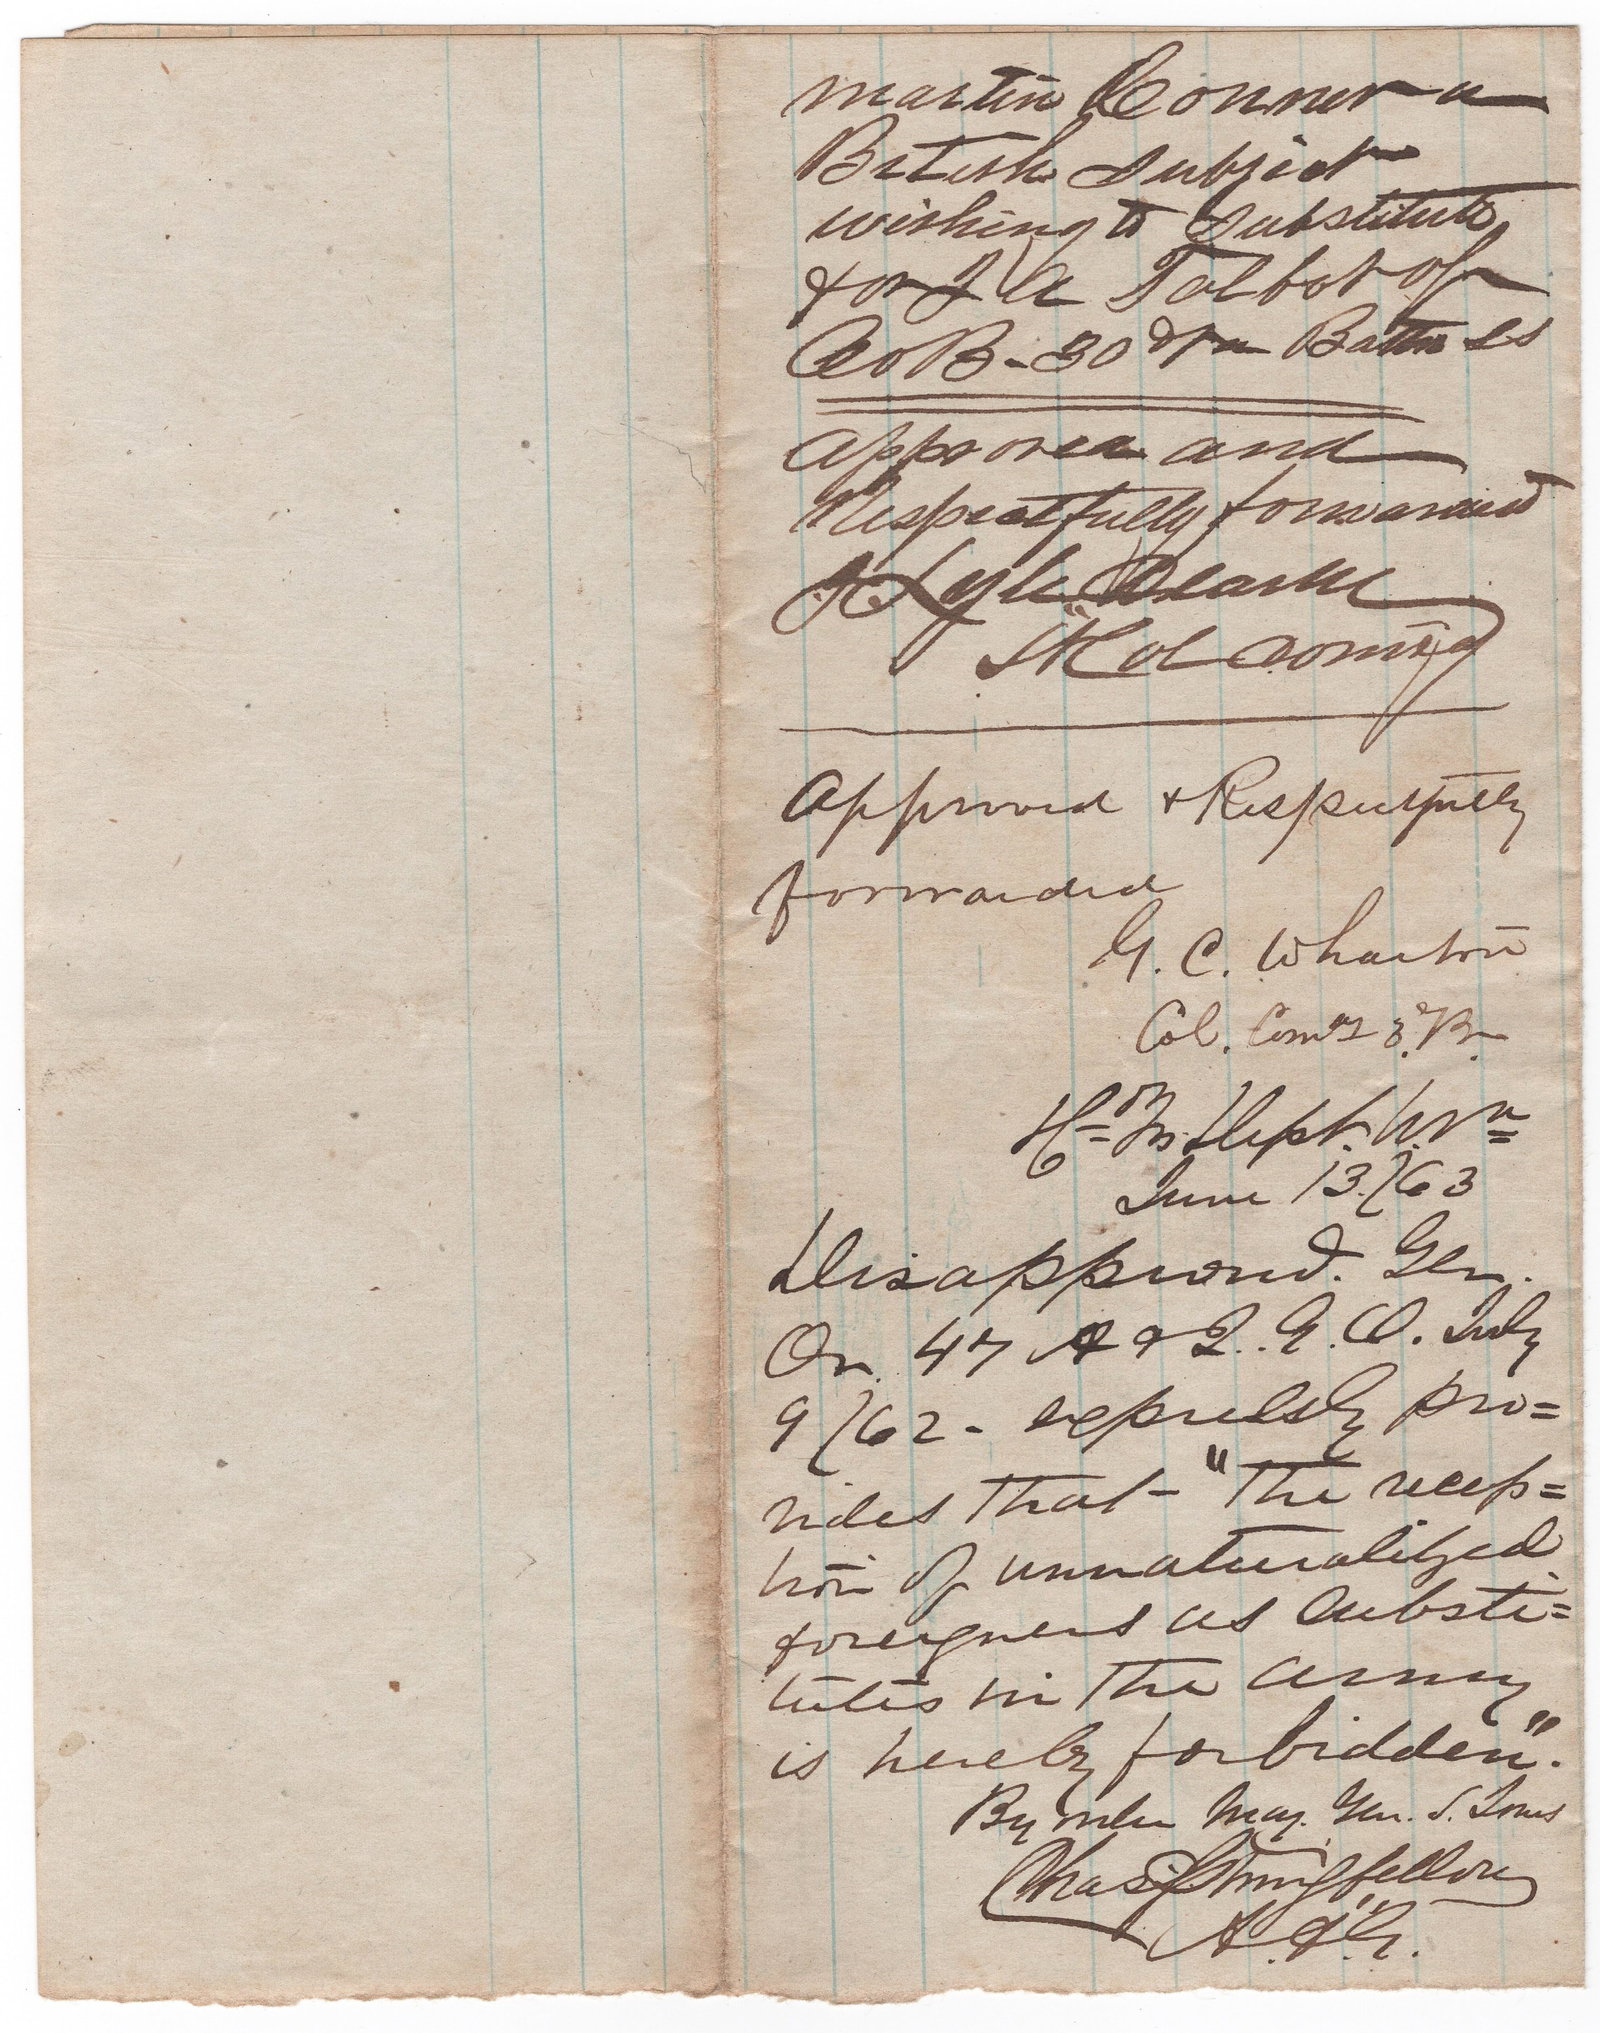 Martin Conner a
British Subject
wishing to Substitute
for J A Talbot of
Co B - 30 Va Battn SS
Approved and
Respectfully forwarded
J Lyle Clarke
Lt Col Comdg
Approved & Respectfully
forwarded
G. C. Wharton
Col. Comdg 3. Br.
Hd Qrs Dept. W. Va
June 13/63
Disapproved. Gen.
Or. 47 A & I. G. O. July
9/62 - expressly pro=
vides that - "The recep=
tion of unnaturalized
foreigners as substi=
tutes in the army
is hereby forbidden".
By order Maj. Gen. S. Jones
Chas S Stringfellow
A. A. G.